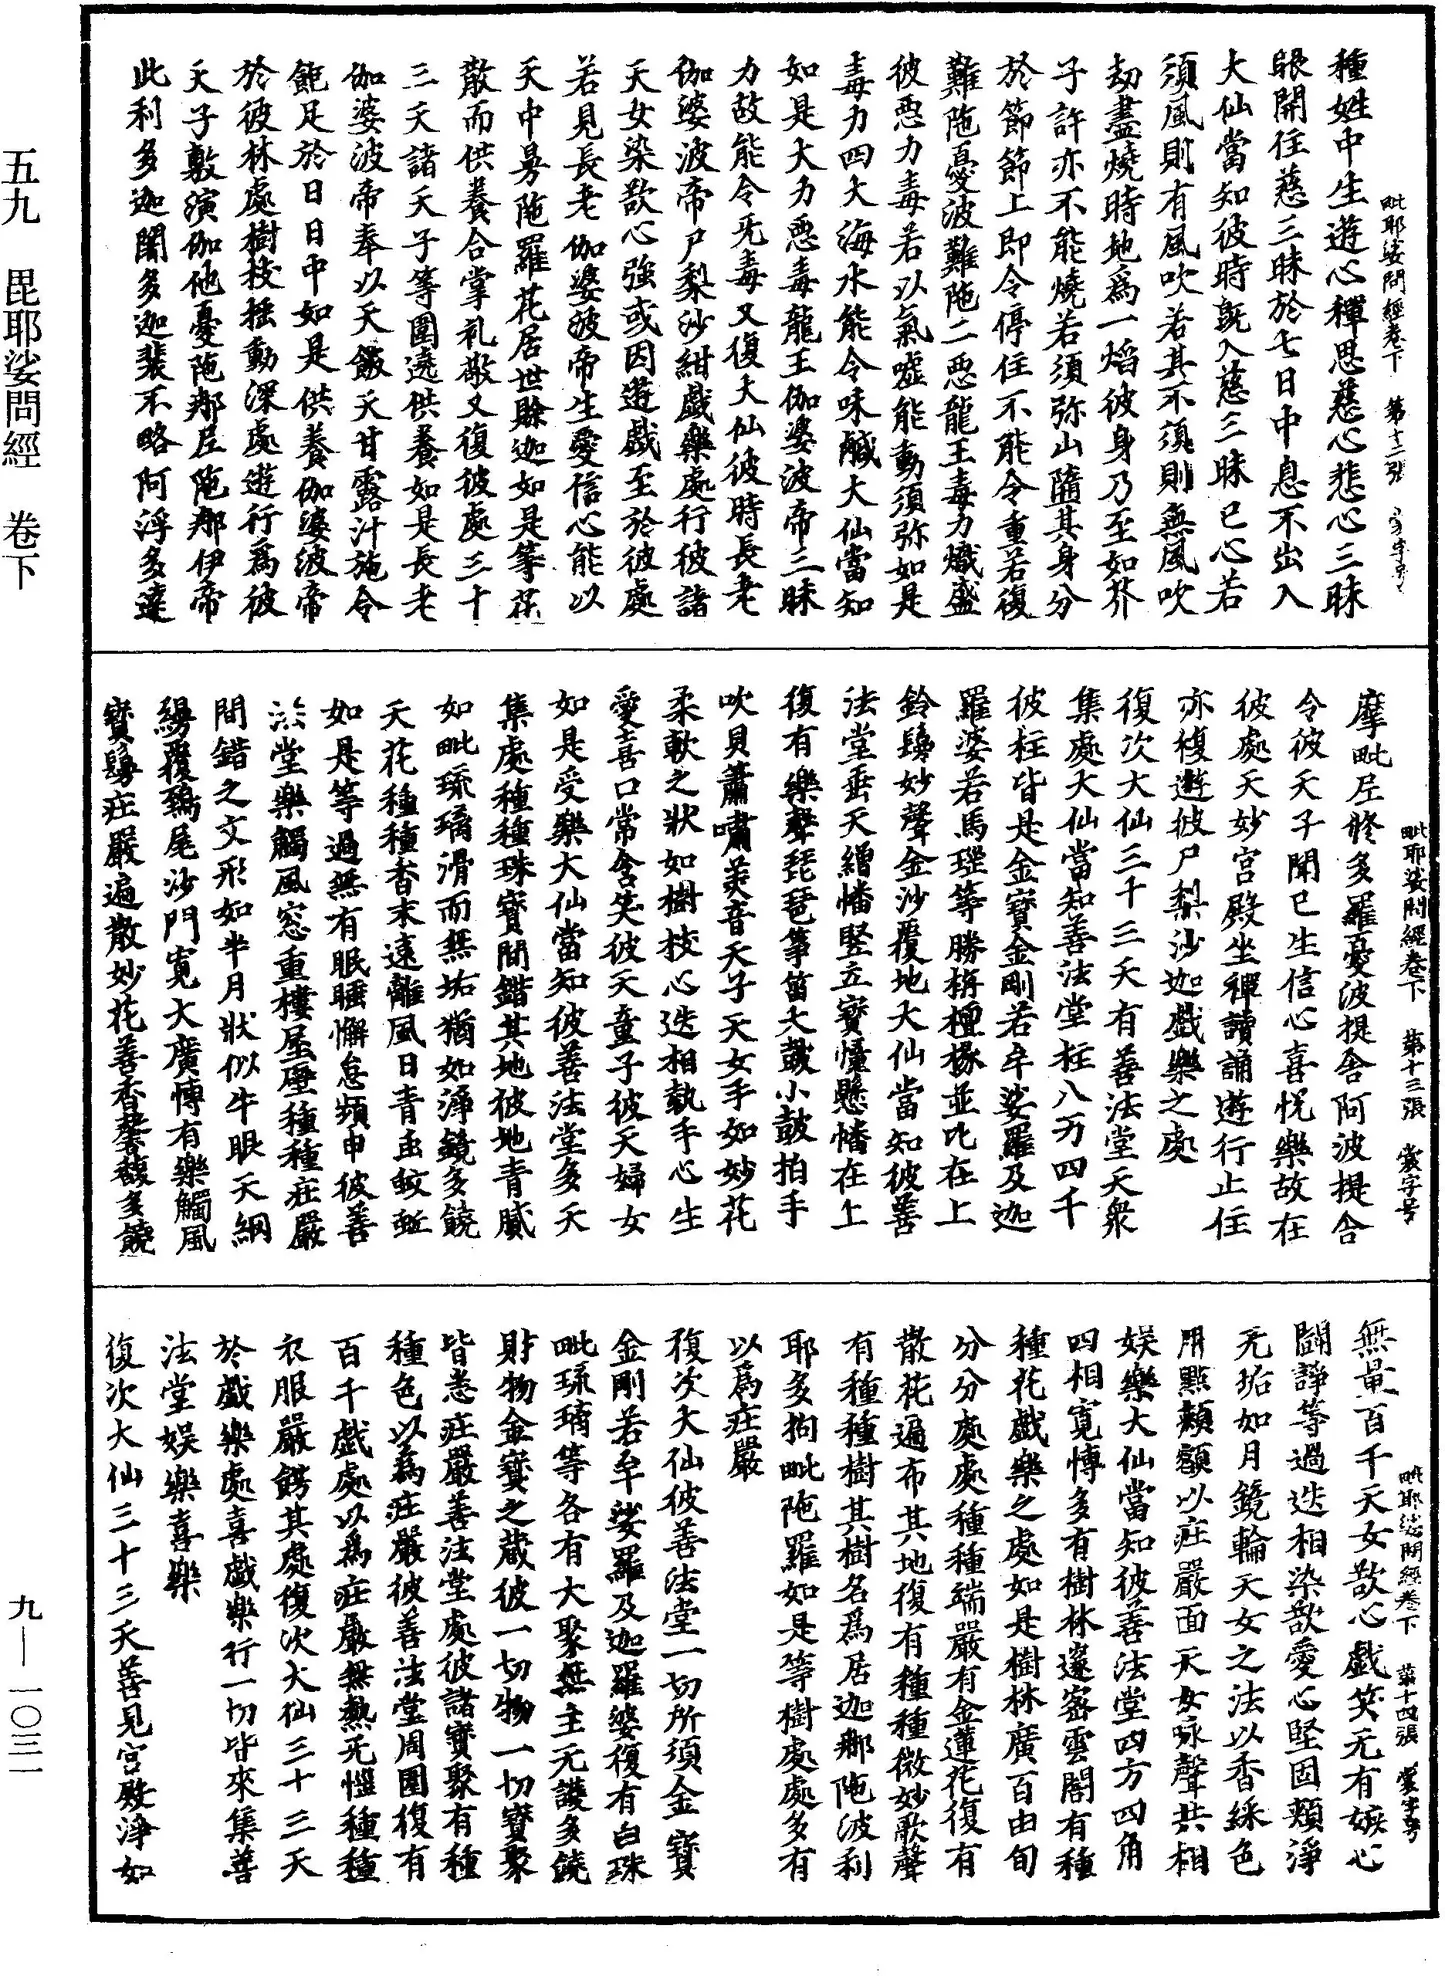 毗耶娑問經卷下　第十二張
種姓中生遊心禪思慈心悲心三昧
眼開住慈三昧於七日中息不出入
大仙當知彼時旣入慈三昧已心若
須風則有風吹若其不須則無風吹
劫盡燒時地爲一焰彼身乃至如芥
子許亦不能燒若須弥山隨其身分
於節節上即令停住不能令重若復
難陁憂波難陁二惡龍王毒力熾盛
彼惡力毒若以氣噓能動須弥如是
毒力四大海水能令味鹹大仙當知
如是大力惡毒龍王伽婆波帝三昧
力故能令无毒又復大仙彼時長老
伽婆波帝尸梨沙紺戲樂處行彼諸
天女染欲心強或因遊戲至於彼處
若見長老伽婆波帝生愛信心能以
天中曼陁羅花居世賖迦如是等花
散而供養合掌礼敬又復彼處三十
三天諸天子等圍遶供養如是長老
伽婆波帝奉以天飯天甘露汁施令
飽足於日日中如是供養伽婆波帝
於彼林處樹枝搖動深處遊行爲彼
天子敷演伽他憂陁那尼陁那伊帝
此利多迦闍多迦裴不略阿浮多達
毗耶娑問經卷下　第十三張　裳字号
摩毗尼修多羅憂波提舍阿波提舍
令彼天子聞已生信心喜悅樂故在
彼處天妙宮殿坐禪讀誦遊行止住
亦複遊彼尸梨沙迦戲樂之處
復次大仙三十三天有善法堂天衆
集處大仙當知善法堂柱八万四千
彼柱皆是金寶金剛若牟娑羅及迦
羅婆若馬瑙等勝栴檀椽並比在上
鈴鬘妙聲金沙覆地大仙當知彼善
法堂垂天繒幡竪立寶幢懸幡在上
復有樂聲琵琶箏笛大鼓小鼓拍手
吹貝簫嘯美音天子天女手如妙花
柔軟之狀如樹枝心迭相執手心生
愛喜口常含笑彼天童子彼天婦女
如是受樂大仙當知彼善法堂多天
集處種種珠寶間錯其地彼地青膩
如毗琉璃滑而無垢猶如淨鏡多饒
天花種種香末遠離風日青虫蚊䖟
如是等過無有眠睡懈怠頻申彼善
法堂樂觸風窓重樓屋壁種種莊嚴
間錯之文形如半月狀似牛眼天網
縵覆鵄尾沙門寬大廣博有樂觸風
寶鬘莊嚴遍散妙花善香馨馥多饒
毗耶娑問經卷下　第十四張　裳字号
無量百千天女欲心戲笑无有嫉心
鬪諍等過迭相染欲愛心堅固頰淨
无垢如月鏡輪天女之法以香綵色
用點頰額以莊嚴面天女咏聲共相
娛樂大仙當知彼善法堂四方四角
四相寬博多有樹林邃密雲閣有種
種花戲樂之處如是樹林廣百由旬
分分處處種種端嚴有金蓮花復有
散花遍布其地復有種種微妙歌聲
有種種樹其樹名爲居迦那陁波利
耶多拘毗陁羅如是等樹處處多有
以爲莊嚴
復次大仙彼善法堂一切所須金寶
金剛若牟娑羅及迦羅婆復有白珠
毗琉璃等各有大聚無主无護多饒
財物金寶之藏彼一切物一切寶聚
皆悉莊嚴善法堂處彼諸寶聚有種
種色以爲莊嚴彼善法堂周圍復有
百千戲處以爲莊嚴無熱无惱種種
衣服嚴餝其處復次大仙三十三天
於戲樂處喜戲樂行一切皆來集善
法堂娛樂喜樂
復次大仙三十三天善見宮殿淨如
五九　毘耶娑問經　卷下
九—一〇三一